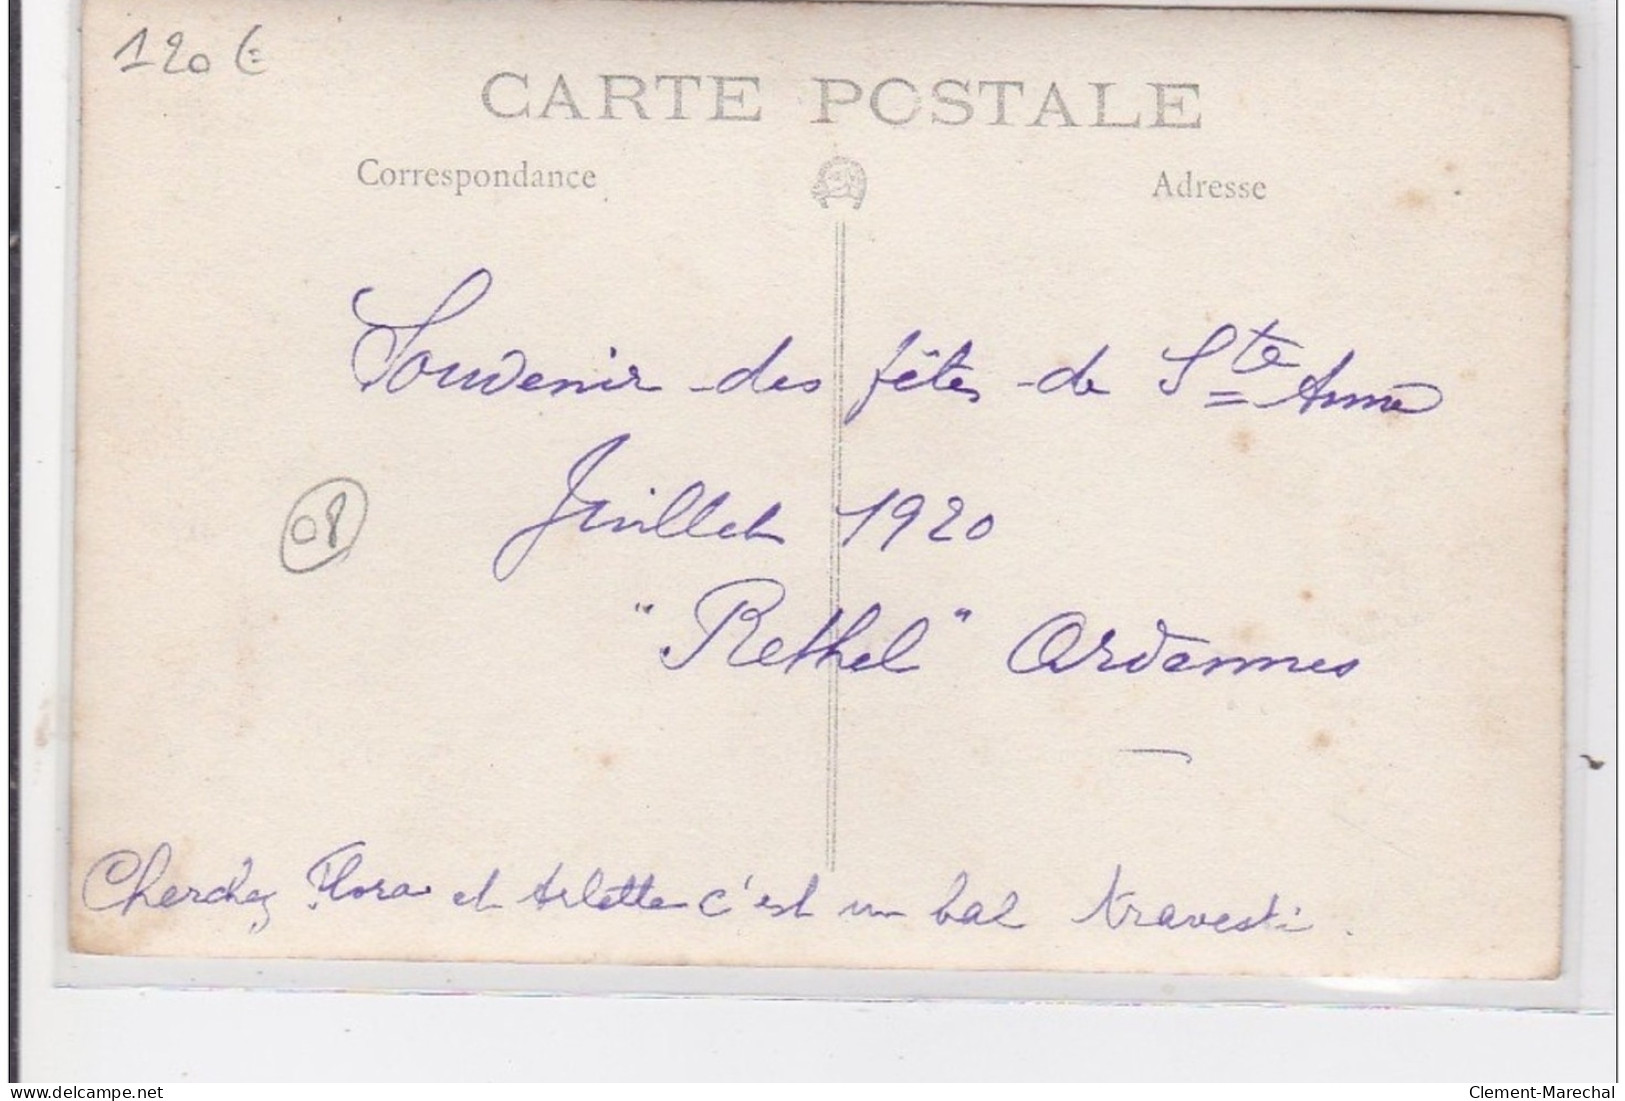 120 €
CARTE POSTALE
Correspondance
Adresse
Souvenir des fêtes de Ste Anne
Juillet 1920
08
"Rethel" Ardennes
Cherchez Flora et Arlette c'est un bal travesti.
delcampe.net
Clement-Marechal